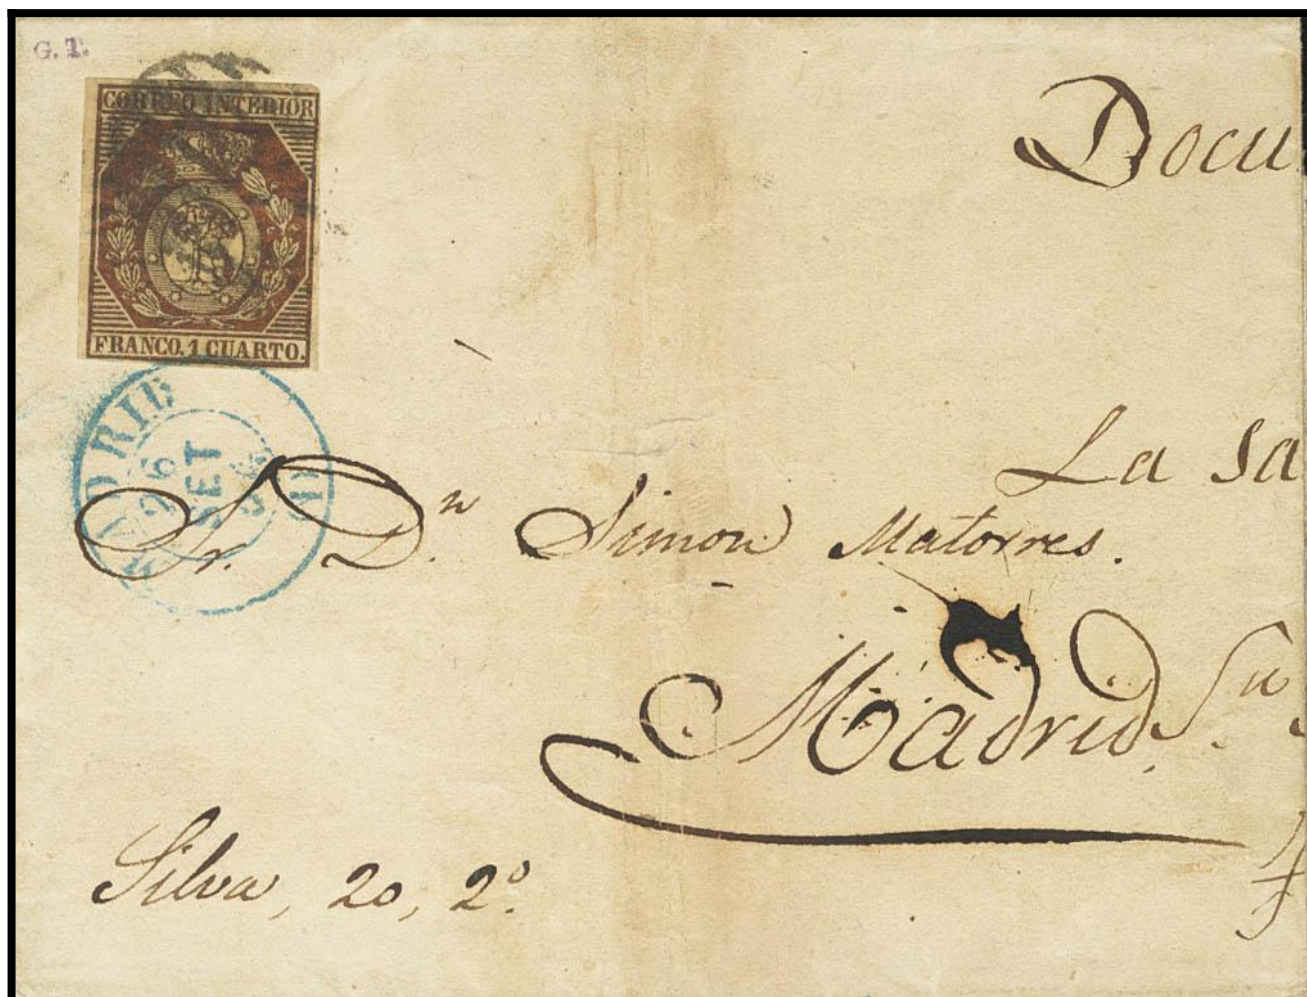 G. T.
CORREO INTERIOR
FRANCO. 1 CUARTO.
MADRID
26
SET
Docu
La Sa
Sr. Dn. Simon Matorres.
Madrid.
Silva, 20, 2º.